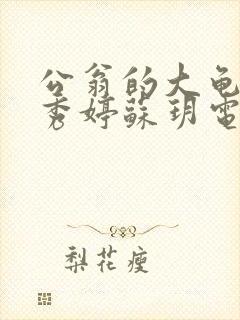 公翁的大龟
秀婷蘇玥電
梨花瘦